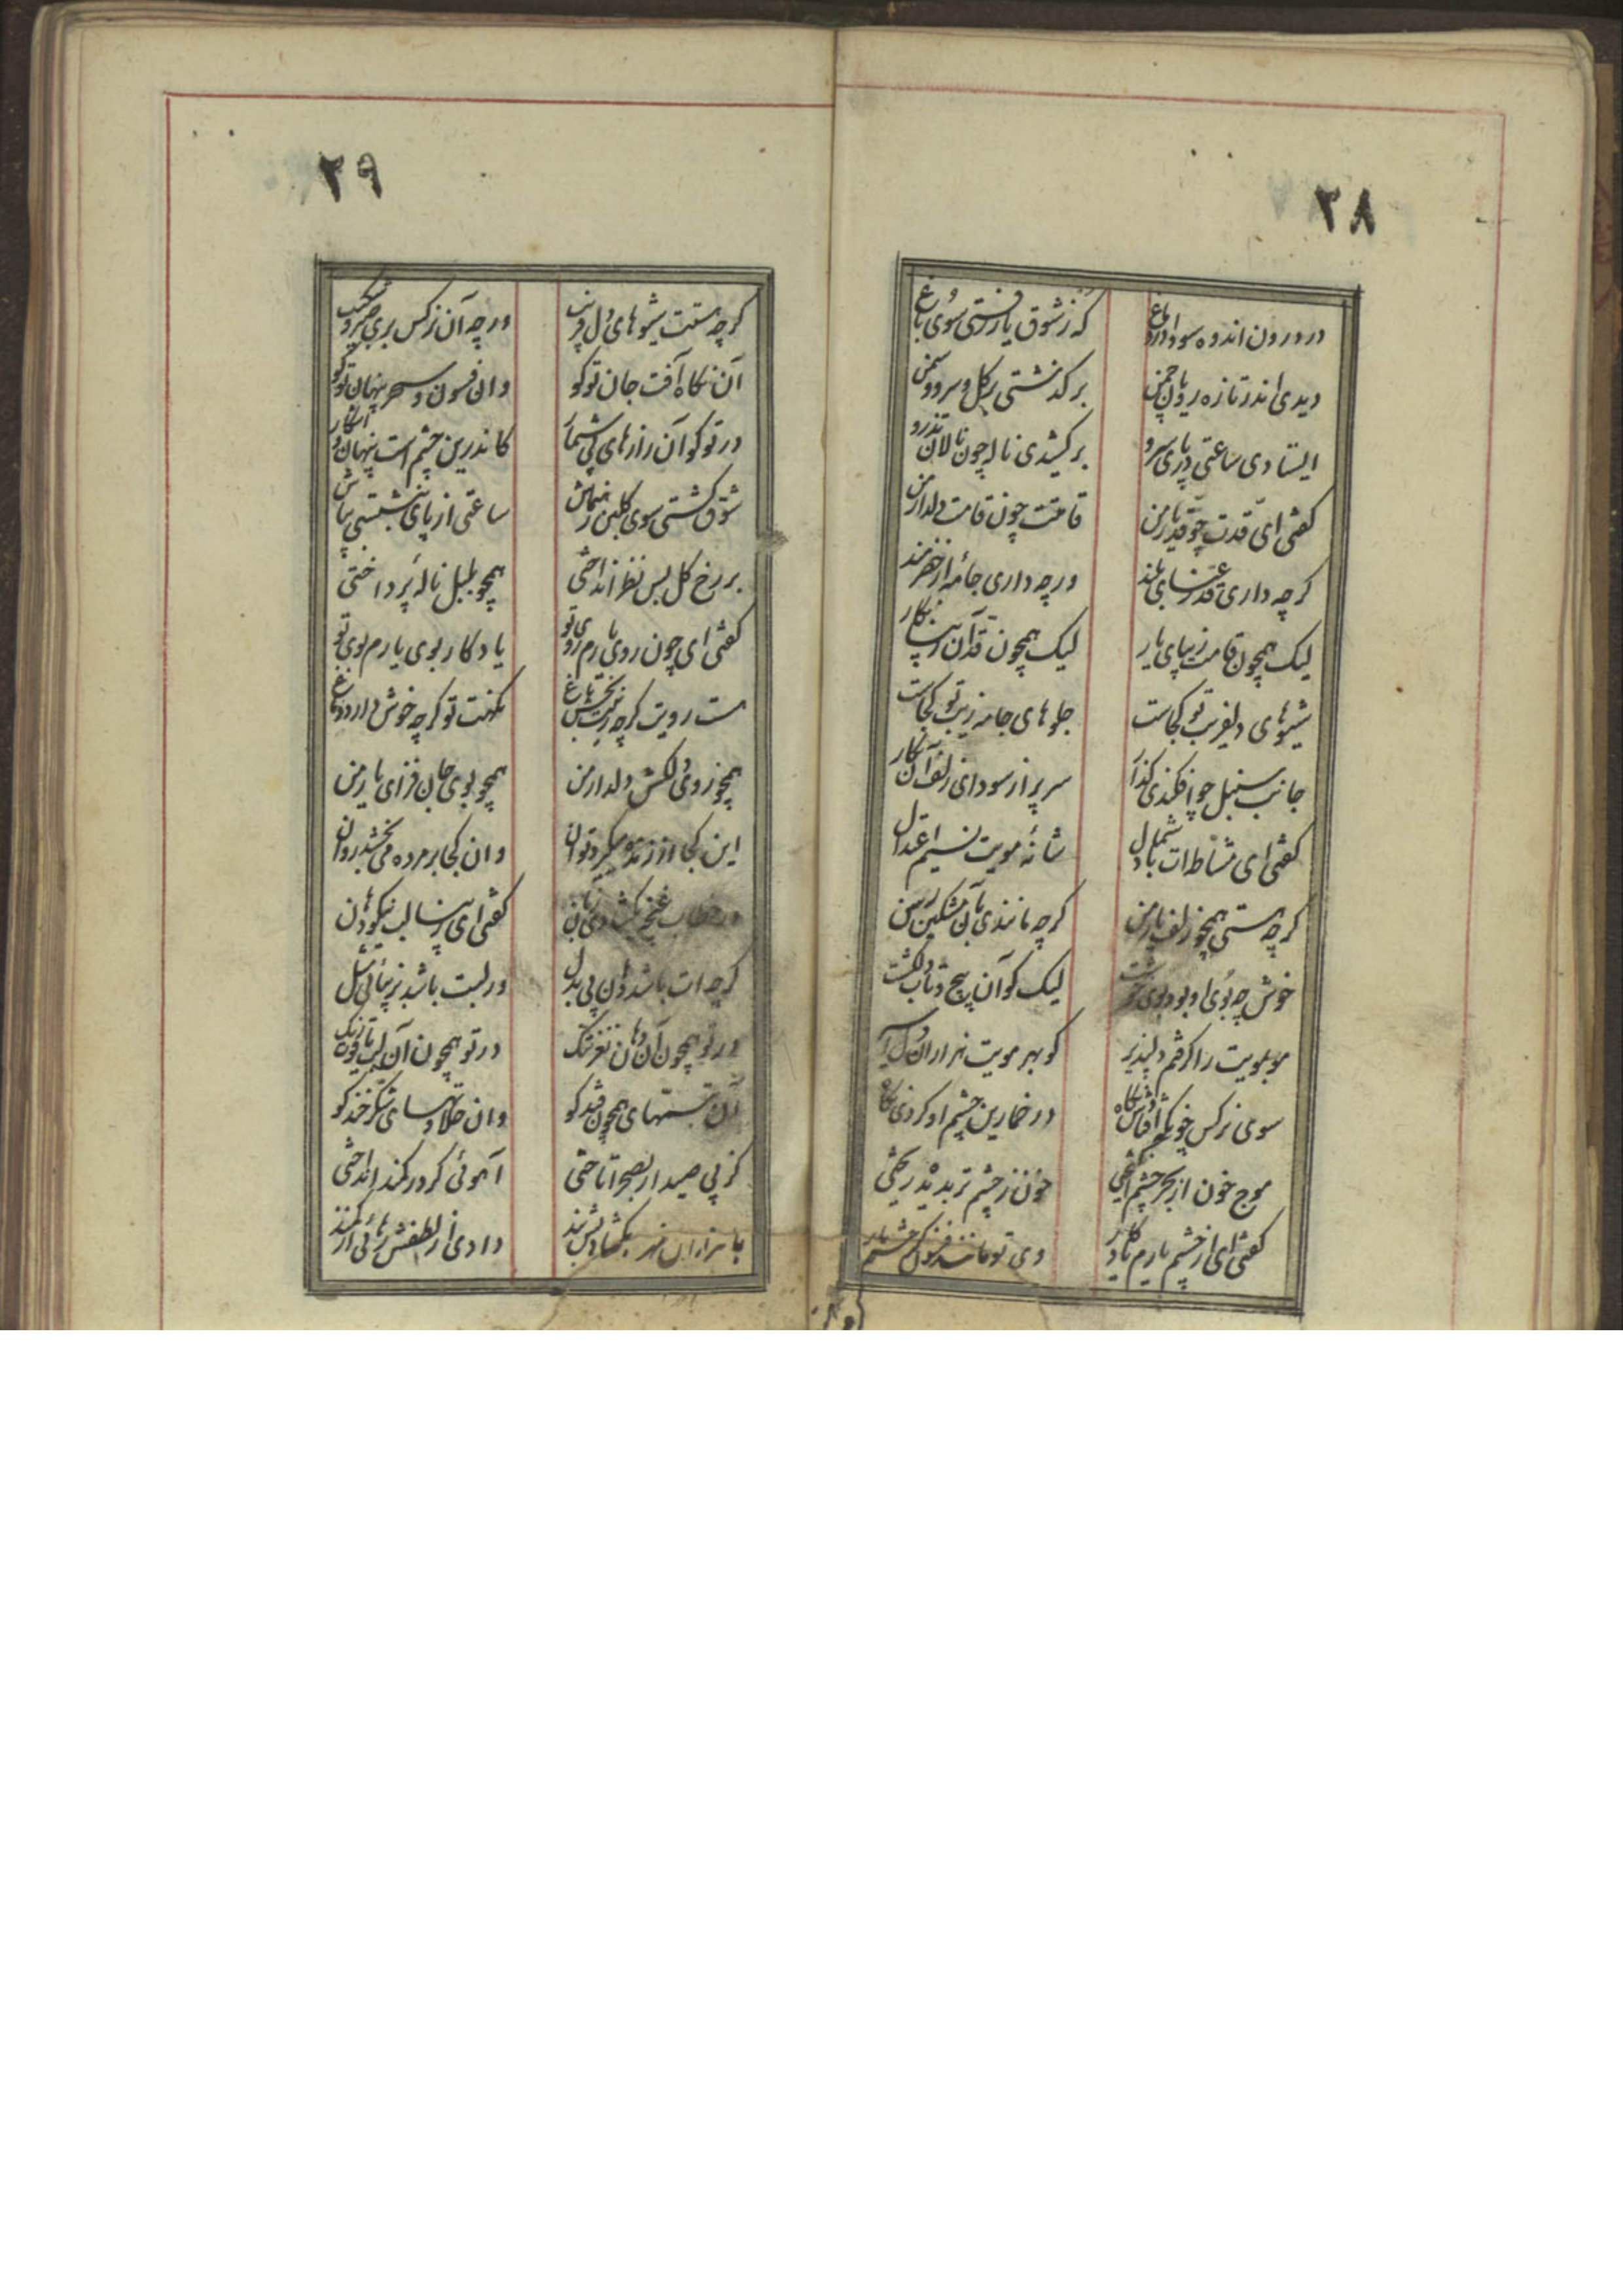 ۲۸
در درون اندوه سودا در دماغ
که ز شوق یار رفتی سوی باغ
دیدی اندر تازه رویان چمن
بر گذشتی بر گل و سرو و سمن
ایستادی ساعتی در پای سرو
بر کشیدی ناله چون نالان تذرو
گفتی ای قدت چو قد یار من
قامتت چون قامت دلدار من
گرچه داری قد رعنای بلند
ورچه داری جامهٔ از خضر
لیک همچون قامت زیبای یار
لیک همچون قد آن زیبا نگار
شیوهای دلفریب تو کجاست
جلوهای جامه زیب تو کجاست
جانب سنبل چو افکندی گذار
سر پر از سودای زلف آن نگار
گفتی ای مشاطه‌ات باد شمال
شانهٔ مویت نسیم اعتدال
گرچه هستی همچو زلف یار من
گرچه مانندی بآن مشکین رسن
خوش چه بوی او بود بوی خوشت
لیک کو آن پیچ و تاب دلکشت
موبمویت را گرفتم دلپذیر
کو بهر مویت هزاران دل اسیر
سوی نرگس چو افتادش نگاه
در خمارین چشم او کردی نگاه
موج خون از بحر چشم انگیختی
خون ز چشم تر بدیده ریختی
گفتی ای از چشم یارم یادگار
وی تو مانند فسون چشم یار
۲۹
گرچه هستت شیوهای دل فریب
ورچه آن نرگس بری صبر و شکیب
آن نگاه آفت جان تو کو
وان فسون و سحر پنهان تو کو
در تو کو آن رازهای بی شمار
کاندرین چشم است پنهان و آشکار
شوق گشتی سوی گلبن رهنماش
ساعتی از پای ننشستی بپاش
بر رخ گل بس نظر انداختی
همچو بلبل ناله پرداختی
گفتی ای چون روی یارم روی تو
یادگار بوی یارم بوی تو
هست رویت گرچه زینت بخش باغ
نکهت تو گرچه خوش دارد دماغ
همچو روی دلکش دلدار من
همچو بوی جان فزای یار من
این کجا از زنده میگیرد توان
وان کجا بر مرده می بخشد روان
در خطاب غنچه بگشادی زبان
گفتی ای زیبا لب نیکو دهان
گرچه ات باشد دهان بی بدل
ور لبت باشد بزیبائی مثل
در تو همچون آن دهان نغز تنگ
در تو همچون آن لب یاقوت رنگ
آن تبسمهای همچون قند کو
وان حلاوتهای شکر خند کو
گر پی صید ار بصحرا تاختی
آهوئی گر در کمند انداختی
با هزاران مهر بگشادیش بند
دادی از لطفش رهائی از کمند